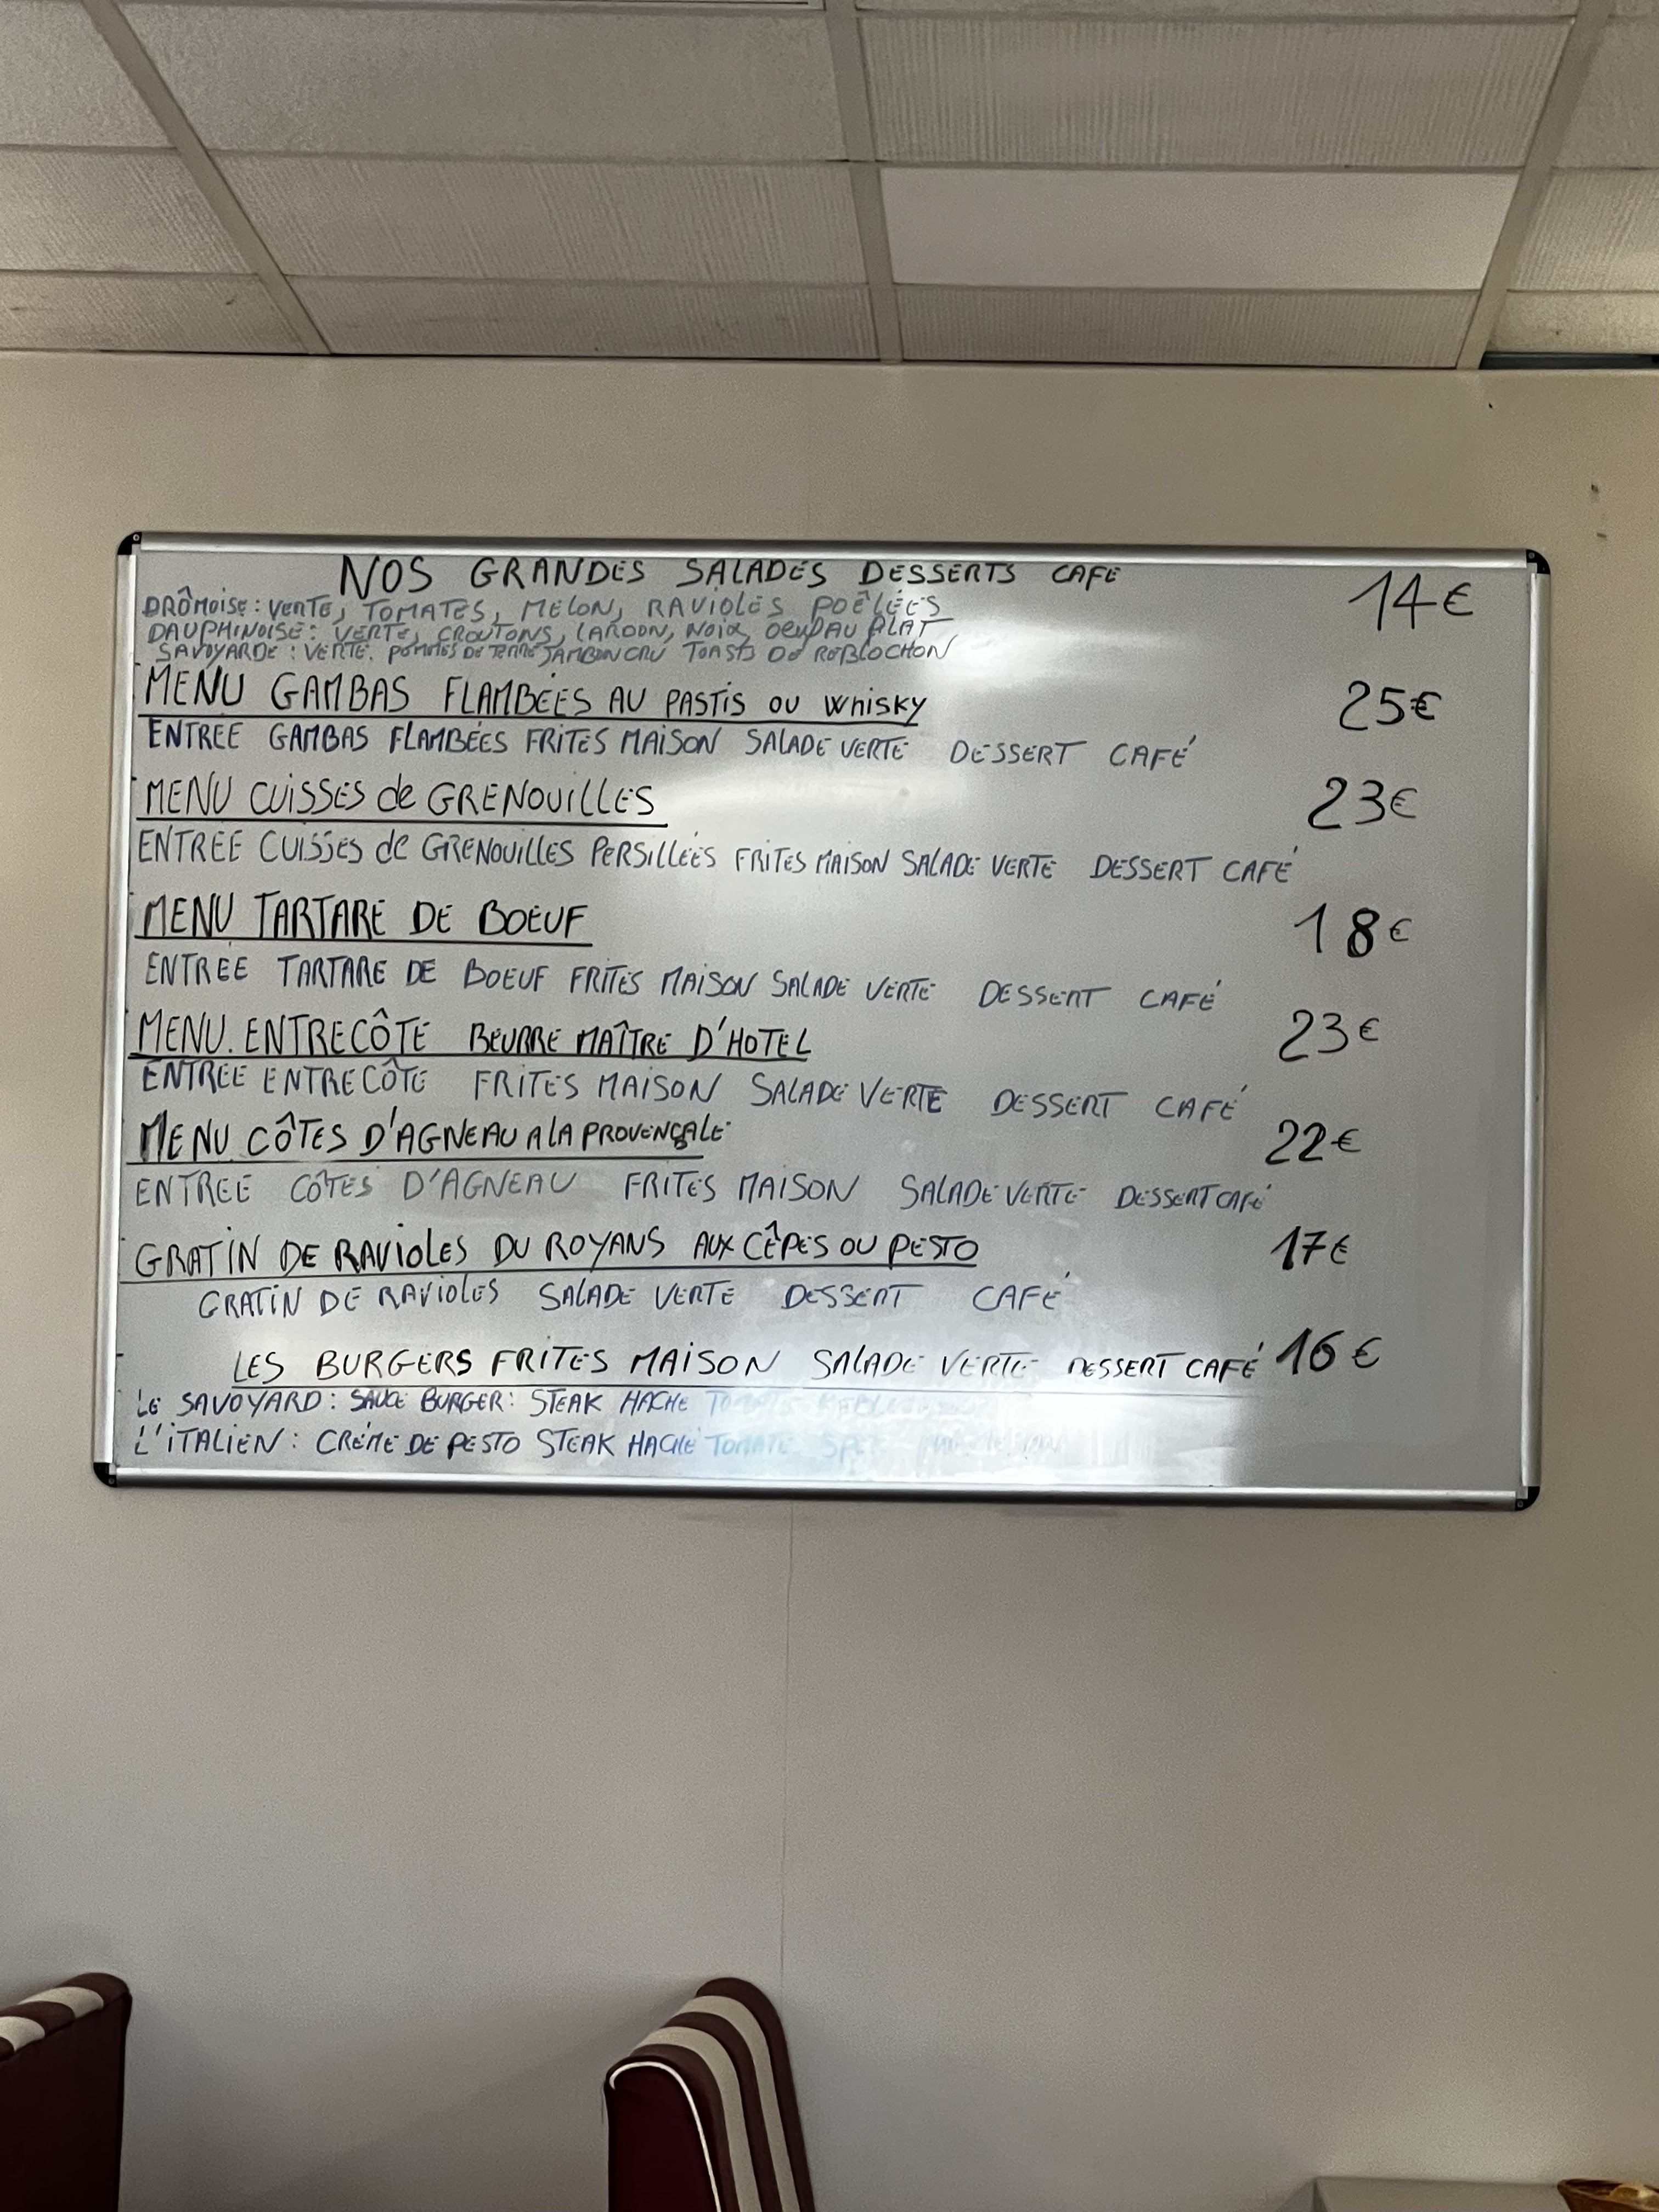 NOS GRANDES SALADES DESSERTS CAFE 14€
DRÔMOISE : VERTE, TOMATES, MELON, RAVIOLES POÊLÉES
DAUPHINOISE : VERTE, CROUTONS, LARDON, NOIX, OEUF AU PLAT
SAVOYARDE : VERTE. POMMES DE TERRE JAMBON CRU TOASTS DE REBLOCHON
MENU GAMBAS FLAMBÉES AU PASTIS OU WHISKY 25€
ENTRÉE GAMBAS FLAMBÉES FRITES MAISON SALADE VERTE DESSERT CAFÉ
MENU CUISSES de GRENOUILLES 23€
ENTREE CUISSES de GRENOUILLES PERSILLÉES FRITES MAISON SALADE VERTE DESSERT CAFÉ
MENU TARTARE DE BOEUF 18€
ENTREE TARTARE DE BOEUF FRITES MAISON SALADE VERTE DESSERT CAFÉ
MENU. ENTRECÔTE BEURRE MAÎTRE D'HOTEL 23€
ENTREE ENTRECÔTE FRITES MAISON SALADE VERTE DESSERT CAFÉ
MENU CÔTES D'AGNEAU A LA PROVENÇALE 22€
ENTREE CÔTES D'AGNEAU FRITES MAISON SALADE VERTE DESSERT CAFÉ
GRATIN DE RAVIOLES DU ROYANS AUX CÊPES OU PESTO 17€
GRATIN DE RAVIOLES SALADE VERTE DESSERT CAFÉ
LES BURGERS FRITES MAISON SALADE VERTE DESSERT CAFÉ 16€
LE SAVOYARD : SAUCE BURGER : STEAK HACHE
L'ITALIEN : CRÉME DE PESTO STEAK HACHÉ TOMATE